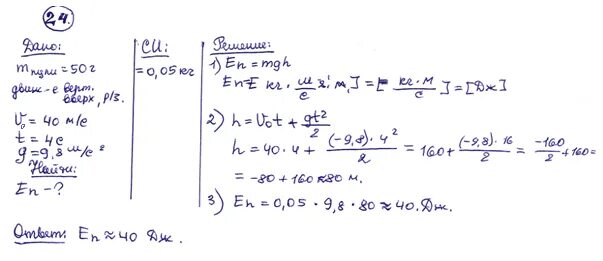 24.
Дано:
m пули = 50 г
движ-е верт. вверх, р/з.
V₀ = 40 м/с
t = 4с
g = 9,8 м/с²
Найти:
Eп - ?
СИ:
= 0,05 кг
Решение:
1) Eп = mgh
Eп = [кг · м/с² · м] = [кг · м/с] = [Дж]
2) h = V₀t + gt²/2
h = 40 · 4 + (-9,8) · 4²/2 = 160 + (-9,8) · 16/2 = -160/2 + 160 =
= -80 + 160 ≈ 80 м.
3) Eп = 0,05 · 9,8 · 80 ≈ 40 Дж.
Ответ: Eп ≈ 40 Дж.